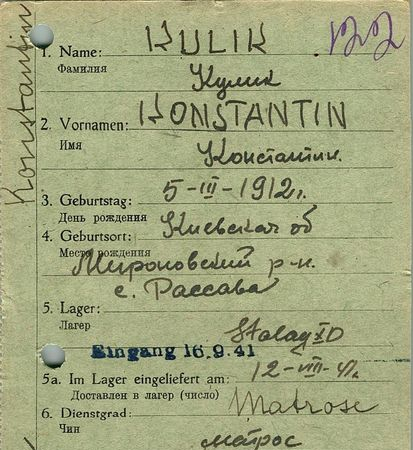 Konstantin
122
1. Name: KULIK
Фамилия
Кулик
2. Vornamen: KONSTANTIN
Имя
Константин.
3. Geburtstag: 5-III-1912г.
День рождения
4. Geburtsort: Киевская об
Место рождения
Мироновский р-н.
с. Рассава
5. Lager:
Лагер
Stalag XD
Eingang 16.9.41
5a. Im Lager eingeliefert am: 12-VIII-41г.
Доставлен в лагер (число)
6. Dienstgrad: Matrose
Чин
матрос